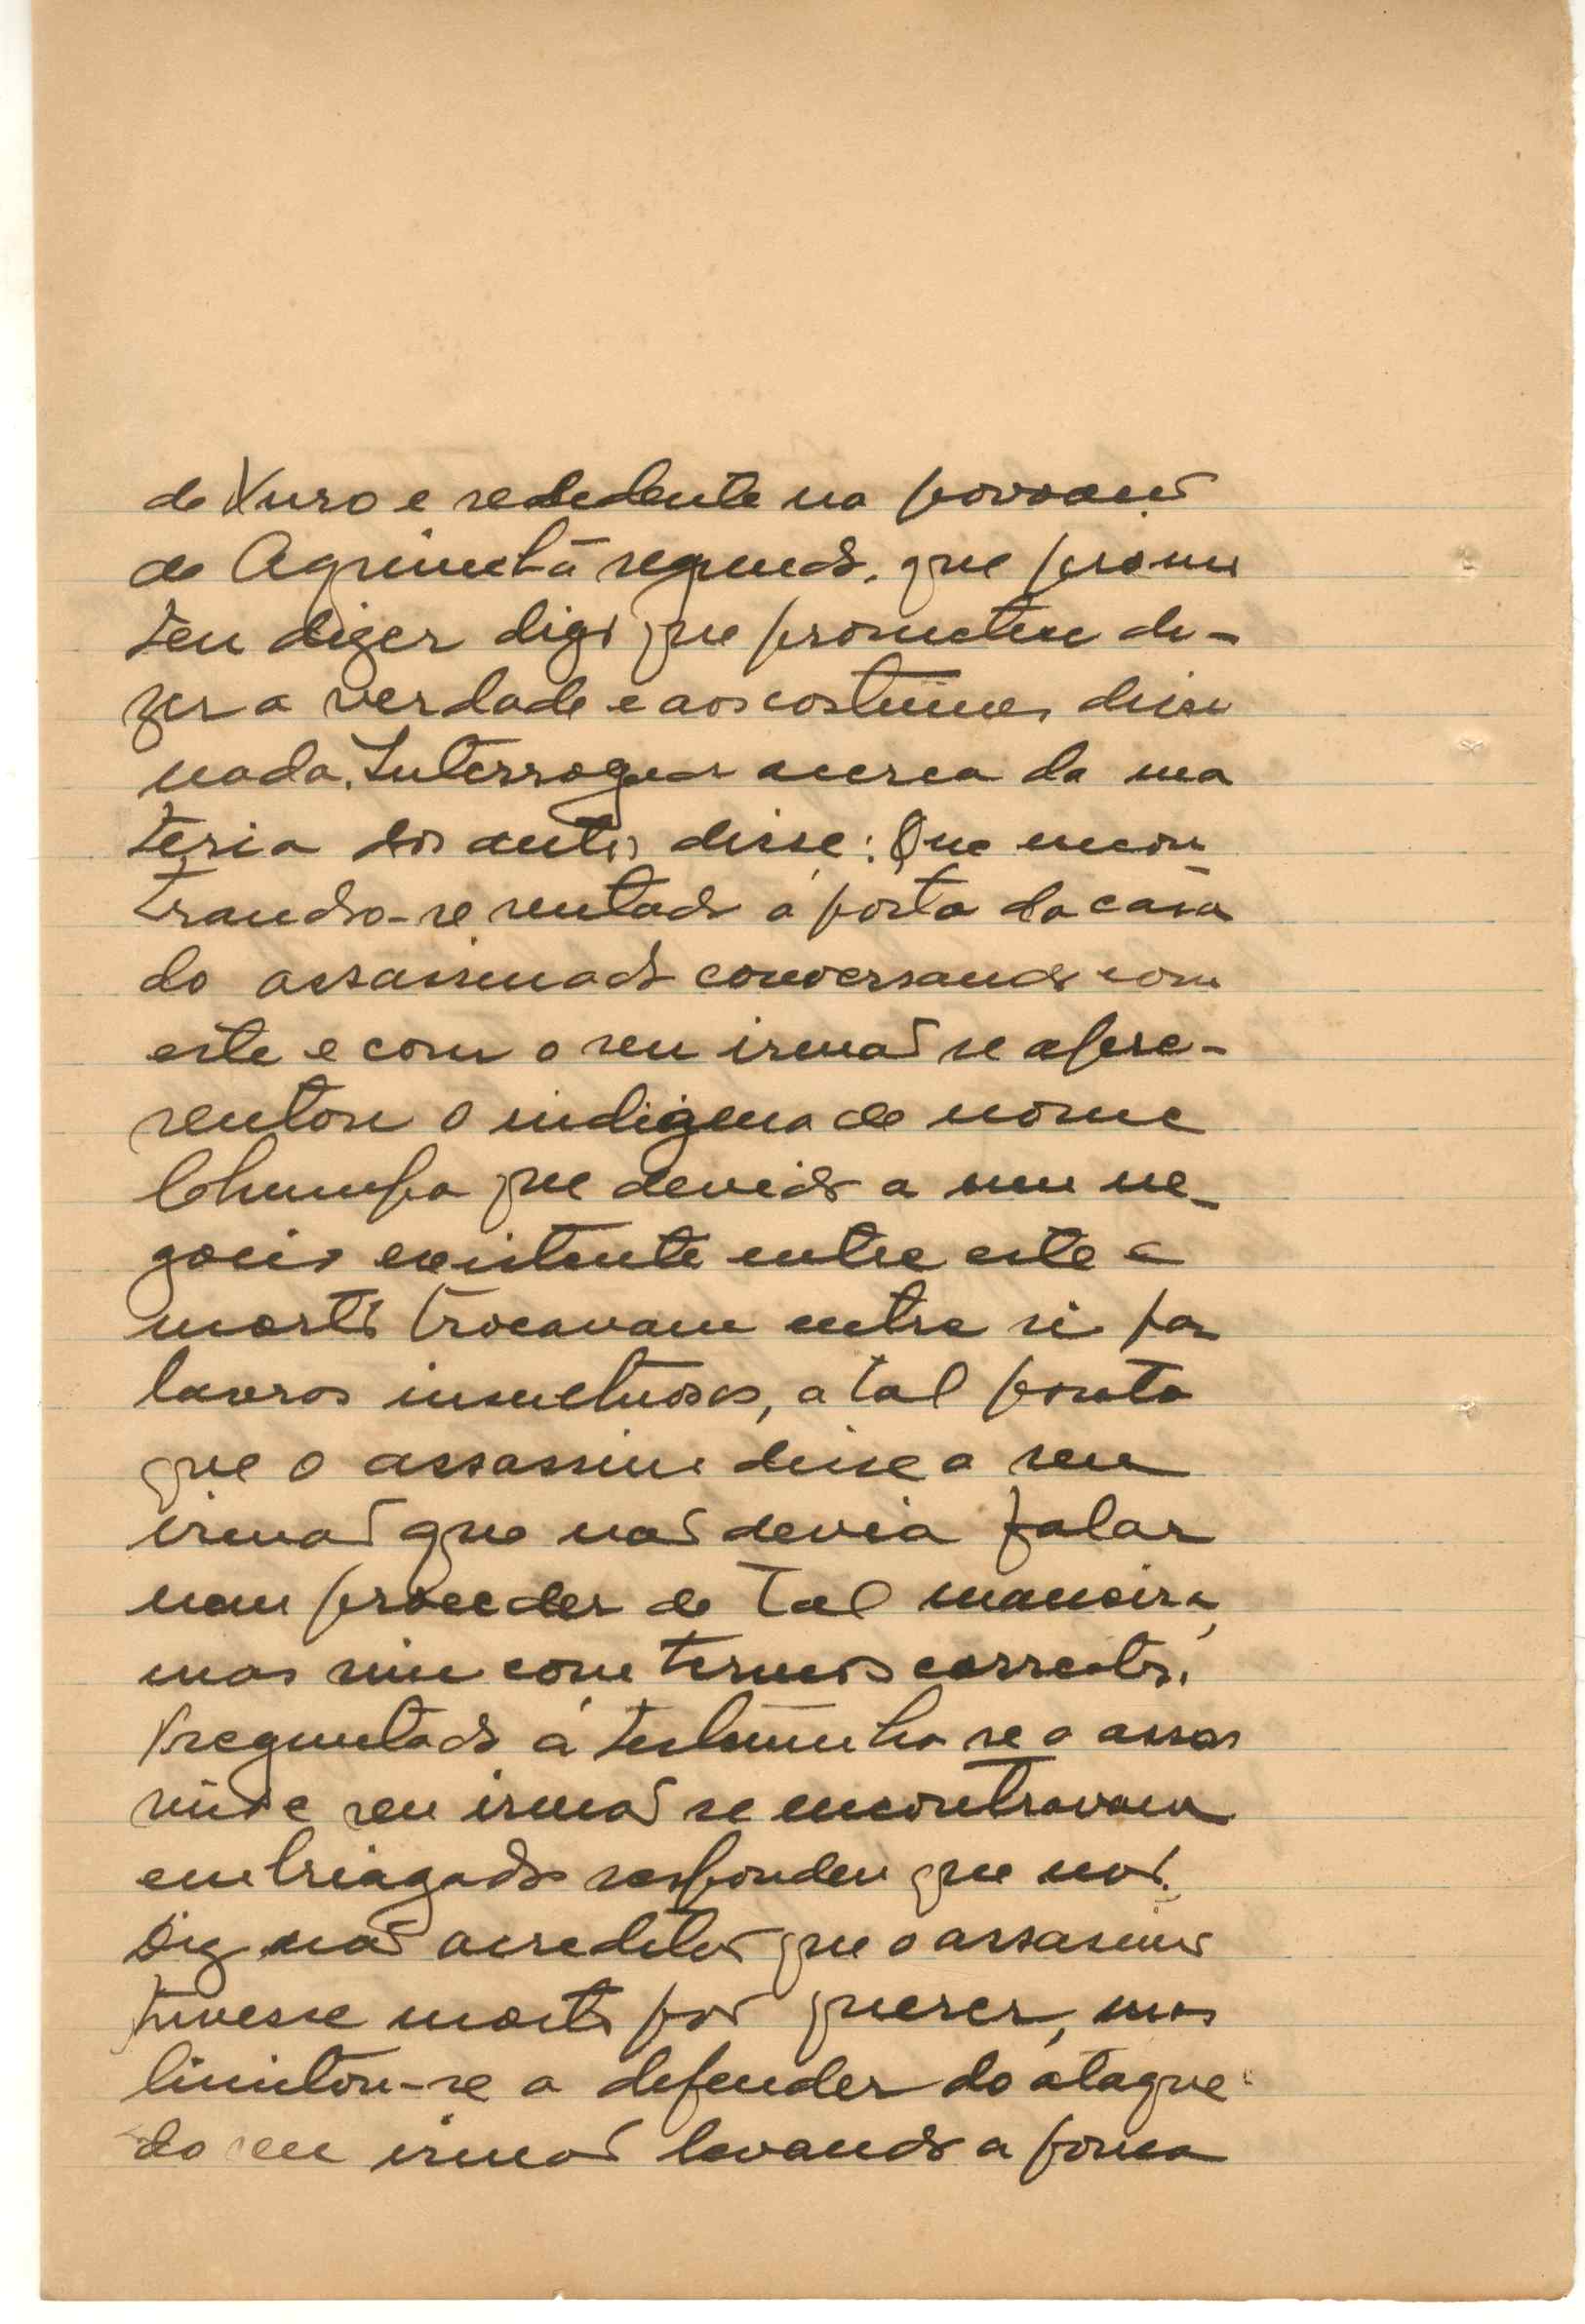 de Xuro e redidente na povoação
de
teu dizer digo que prometeu di-
zer a verdade e aos costumes disse
nada. Interrogado acerca da ma
teria dos autos disse: Que encon
trando-se sentado á porta da casa
do assassinado conversando com
este e com o seu irmão se apre-
sentou o indigena de nome
Chumpa que devido a um ne-
gocio existente entre este e
morto trocavam entre si pa
lavras insultuosas, a tal ponto
que o assassino disse a seu
irmão que não devia falar
nem proceder de tal maneira,
mas sim com termos correctos.
Preguntado á testemunha se o assas
sino e seu irmão se encontravam
embriagados respondeu que não.
Diz não acreditar que o assassino
tivesse morto por querer, mas
limitou-se a defender do ataque
do seu irmão levando a pouca